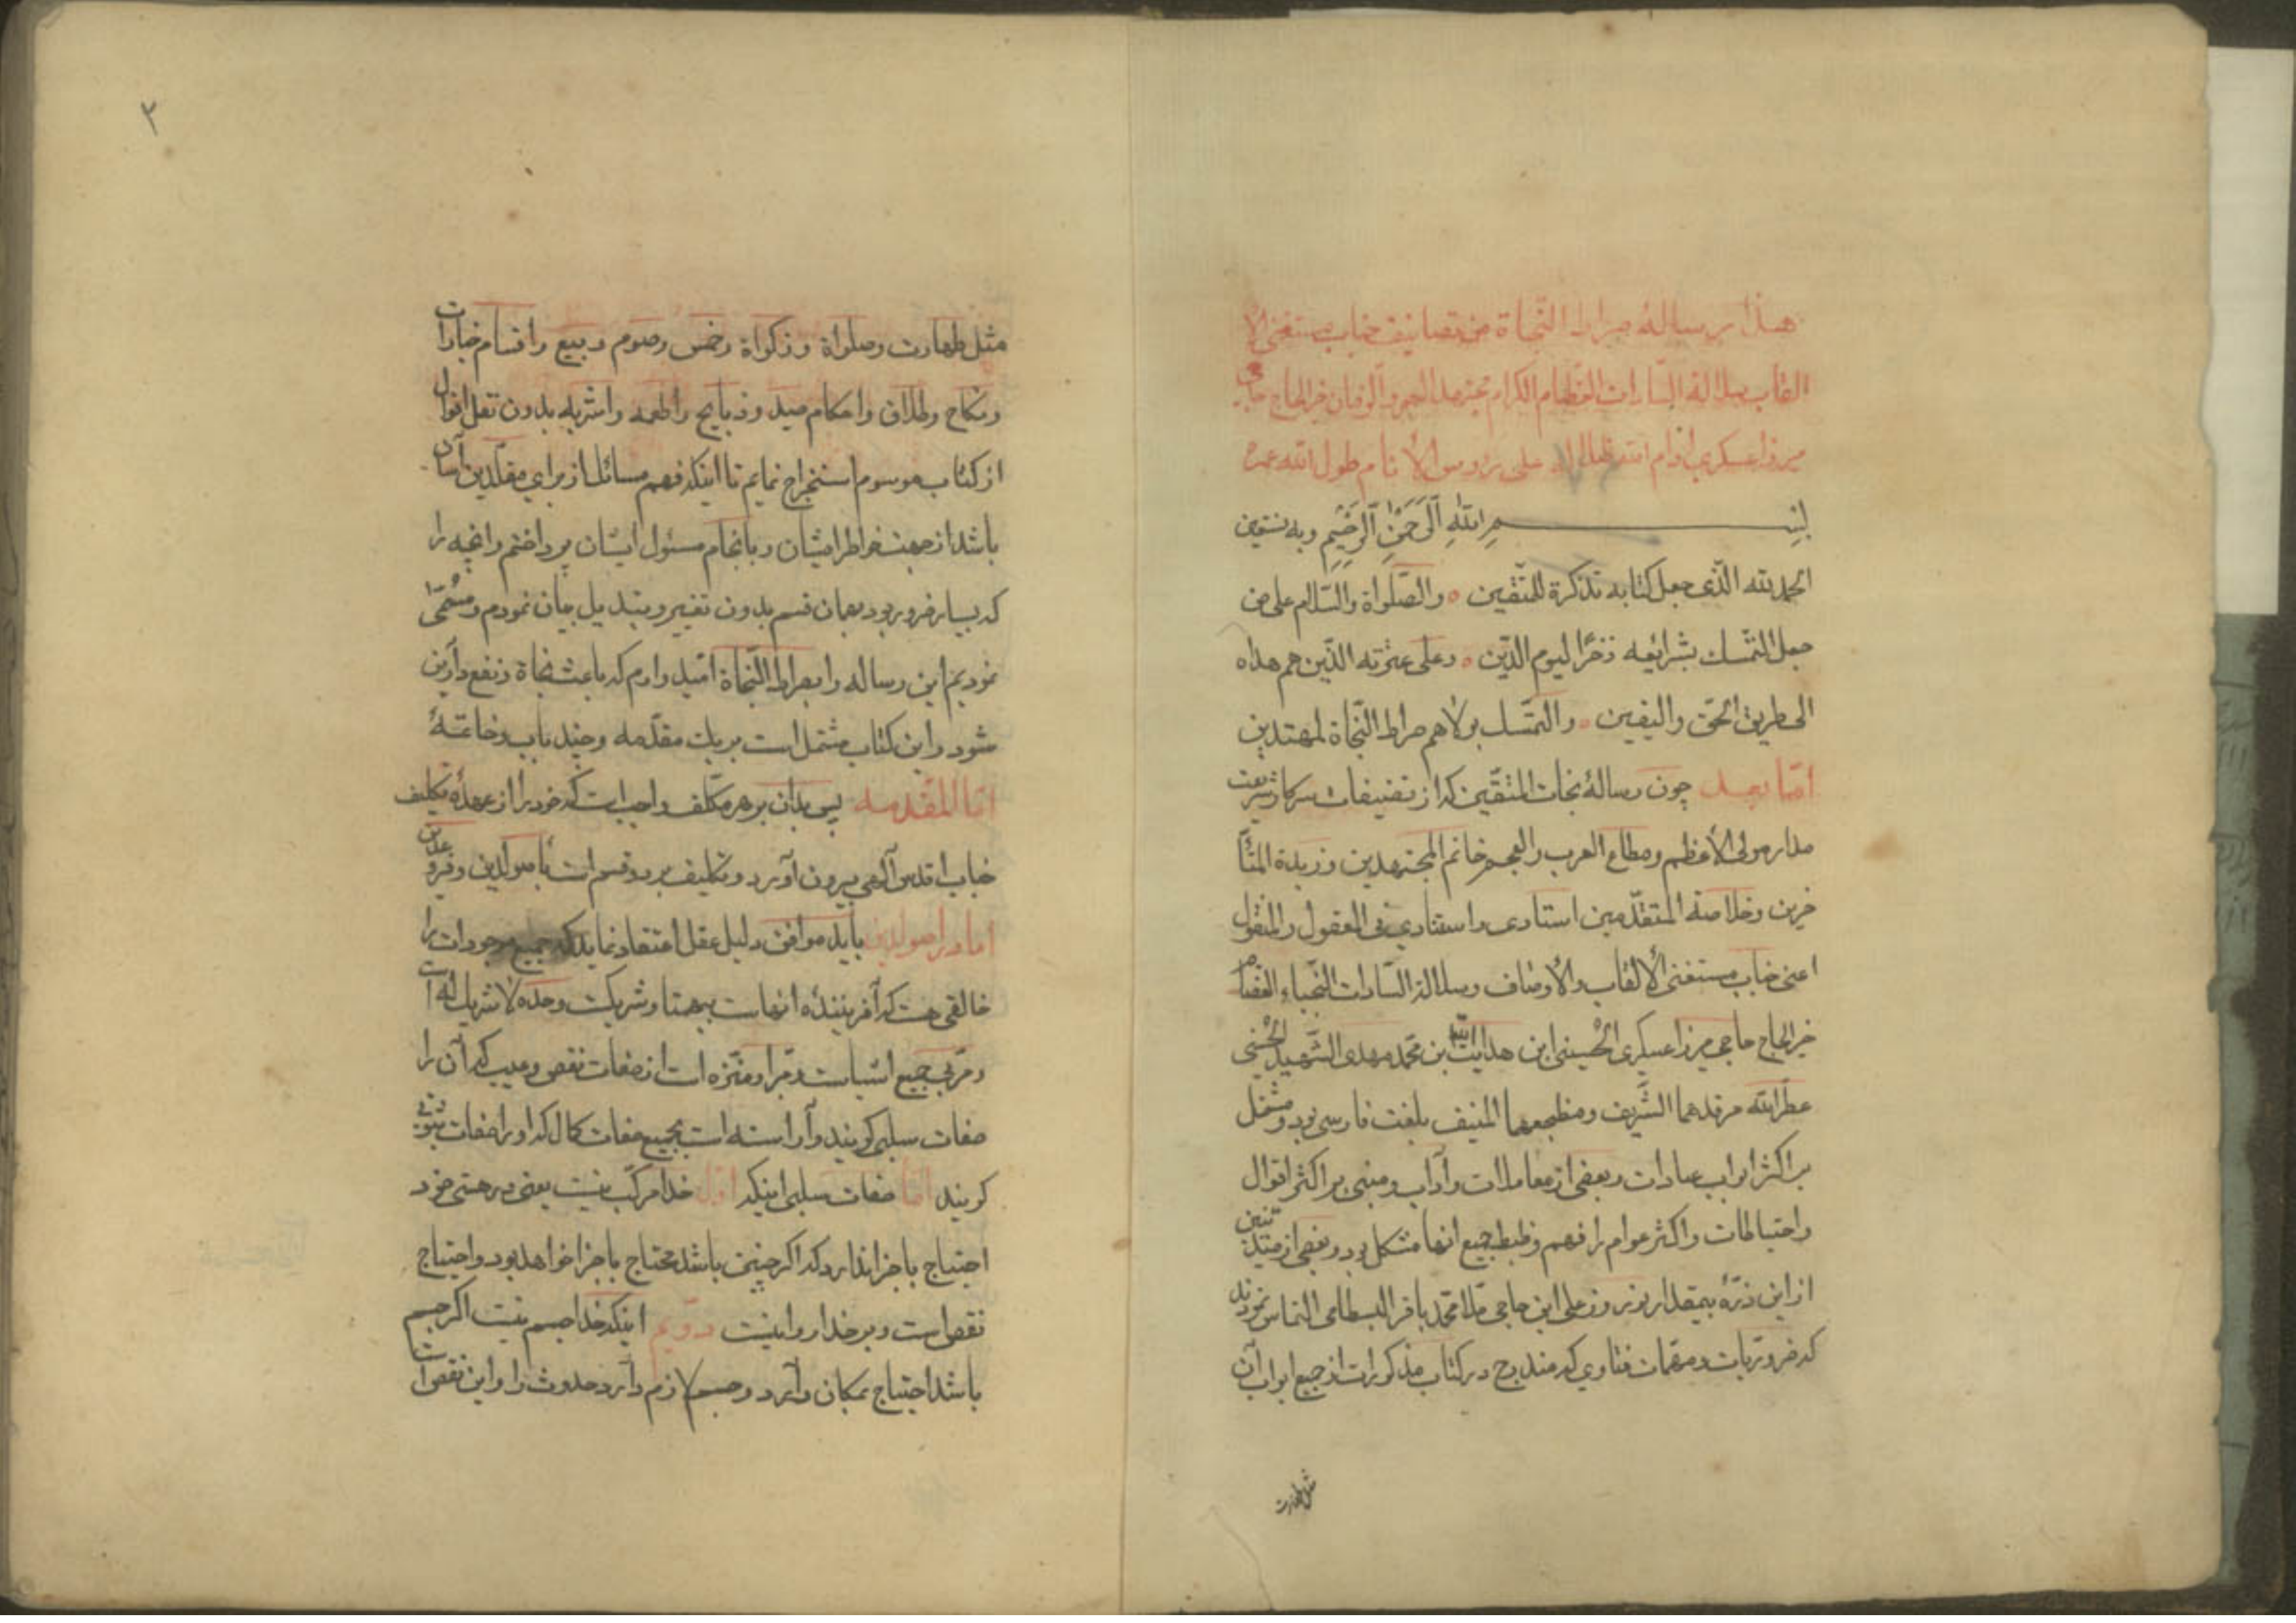 هذا رسالهٔ صراط النّجاة من تصانیف جناب مستغنی الا
لقاب سلالة السّادات العظام الکرام مجتهد العصر والزمان خیر الحاج حاجی
میرزا عسکری ادام الله ظلال علی رؤوس الأنام طول الله عمره
بسم الله الرّحمن الرّحیم وبه نستعین
الحمد لله الّذی جعل کتابه تذکرة للمتّقین ٥ والصّلواة والسّلام علی من
جعل التمّسك بشرایعه ذخرًا لیوم الدّین ٥ وعلی عترته الذّین هم هداه
الی طریق الحقّ والیقین ٥ والتمسّك بولاهم صراط النّجاة لمهتدین
امّا بعد چون رسالهٔ نجات المتقّین که از تصنیفات سرکار شریعت
مدار مولی الأعظم ومطاع العرب والعجم خاتم المجتهدین وزبدة المتأ
خرین وخلاصة المتقدّمین استادی واستنادی فی المعقول والمنقول
اعنی جناب مستغنی الألقاب والأوصاف وسلالة السّادات النّجباء
خیر الحاج حاجی میرزا عسکری الحسینی ابن هدایت الله بن محمّد مهدی الشّهید الحسینی
عطّر الله مرقدهما الشّریف ومضجعهما المنیف بلغت فارسی بود ومشتمل
بر اکثر ابواب عبادات وبعضی از معاملات وآداب ومبنی بر اکثر اقوال
واحتیاطات واکثر عوام را فهم وضبط جمیع انها مشکل بود وبعضی از متدینین
از این ذرّهٔ بیمقدار نوروز علی ابن حاجی ملّا محمّد باقر البسطامی التماس نمودند
که ضروریات ومهّمات فتاوی که مندرج در کتاب مذکور است از جمیع ابواب آن
مثل طهارت
٢
مثل طهارت وصلواة وزکواة وخمس وصوم وبیع واقسام خیارات
ونکاح وطلاق واحکام صید وذبایح واطعمه واشربه بدون نقل اقوال
از کتاب موسوم استخراج نمایم تا اینکه فهم مسائل از برای مقلّدین آسان
باشد از جهت خاطر ایشان وبانجام مسئول ایشان پرداختم وانچه را
که بسیار ضرور بود بهمان قسم بدون تغییر وتبدیل بیان نمودم ومسّمی
نمودیم این رساله را بصراط النّجاة امّید وارم که باعث نجاة ونفع دارین
شود واین کتاب مشتمل است بر یك مقدّمه وچند باب وخاتمهٔ
امّا المقّدمه پس بدان بر هر مکلّف واجب است که خود را از عهدهٔ تکلیف
جناب اقدس آلهی بیرون آورد وتکلیف بر دو قسم است باصولدین وفروعدین
اما در اصولدین باید موافق دلیل عقل اعتقاد نماید که جمیع موجودات را
خالقی هست که آفرینندهٔ انهاست بیهمتا وشریکست وحده لا شریك له است
ومرّبی جمیع اشیاست ومبّرا ومنّزه است از صفات نقص وعیب که آن را
صفات سلبی کویند وآراسته است بجمیع صفات کمال که او را صفات ثبوتی
کویند امّا صفات سلبی اینکه اوّل خدا مرکّب نیست یعنی در هستی خود
احتیاج باجزا ندارد که اکر چنین باشد محتاج باجزا خواهد بود واحتیاج
نقص است وبر خدا روا نیست دوّیم اینکه خدا جسم نیست اکر جسم
باشد احتیاج بمکان دارد وجسم لازم دارد حدوث را واین نقص است